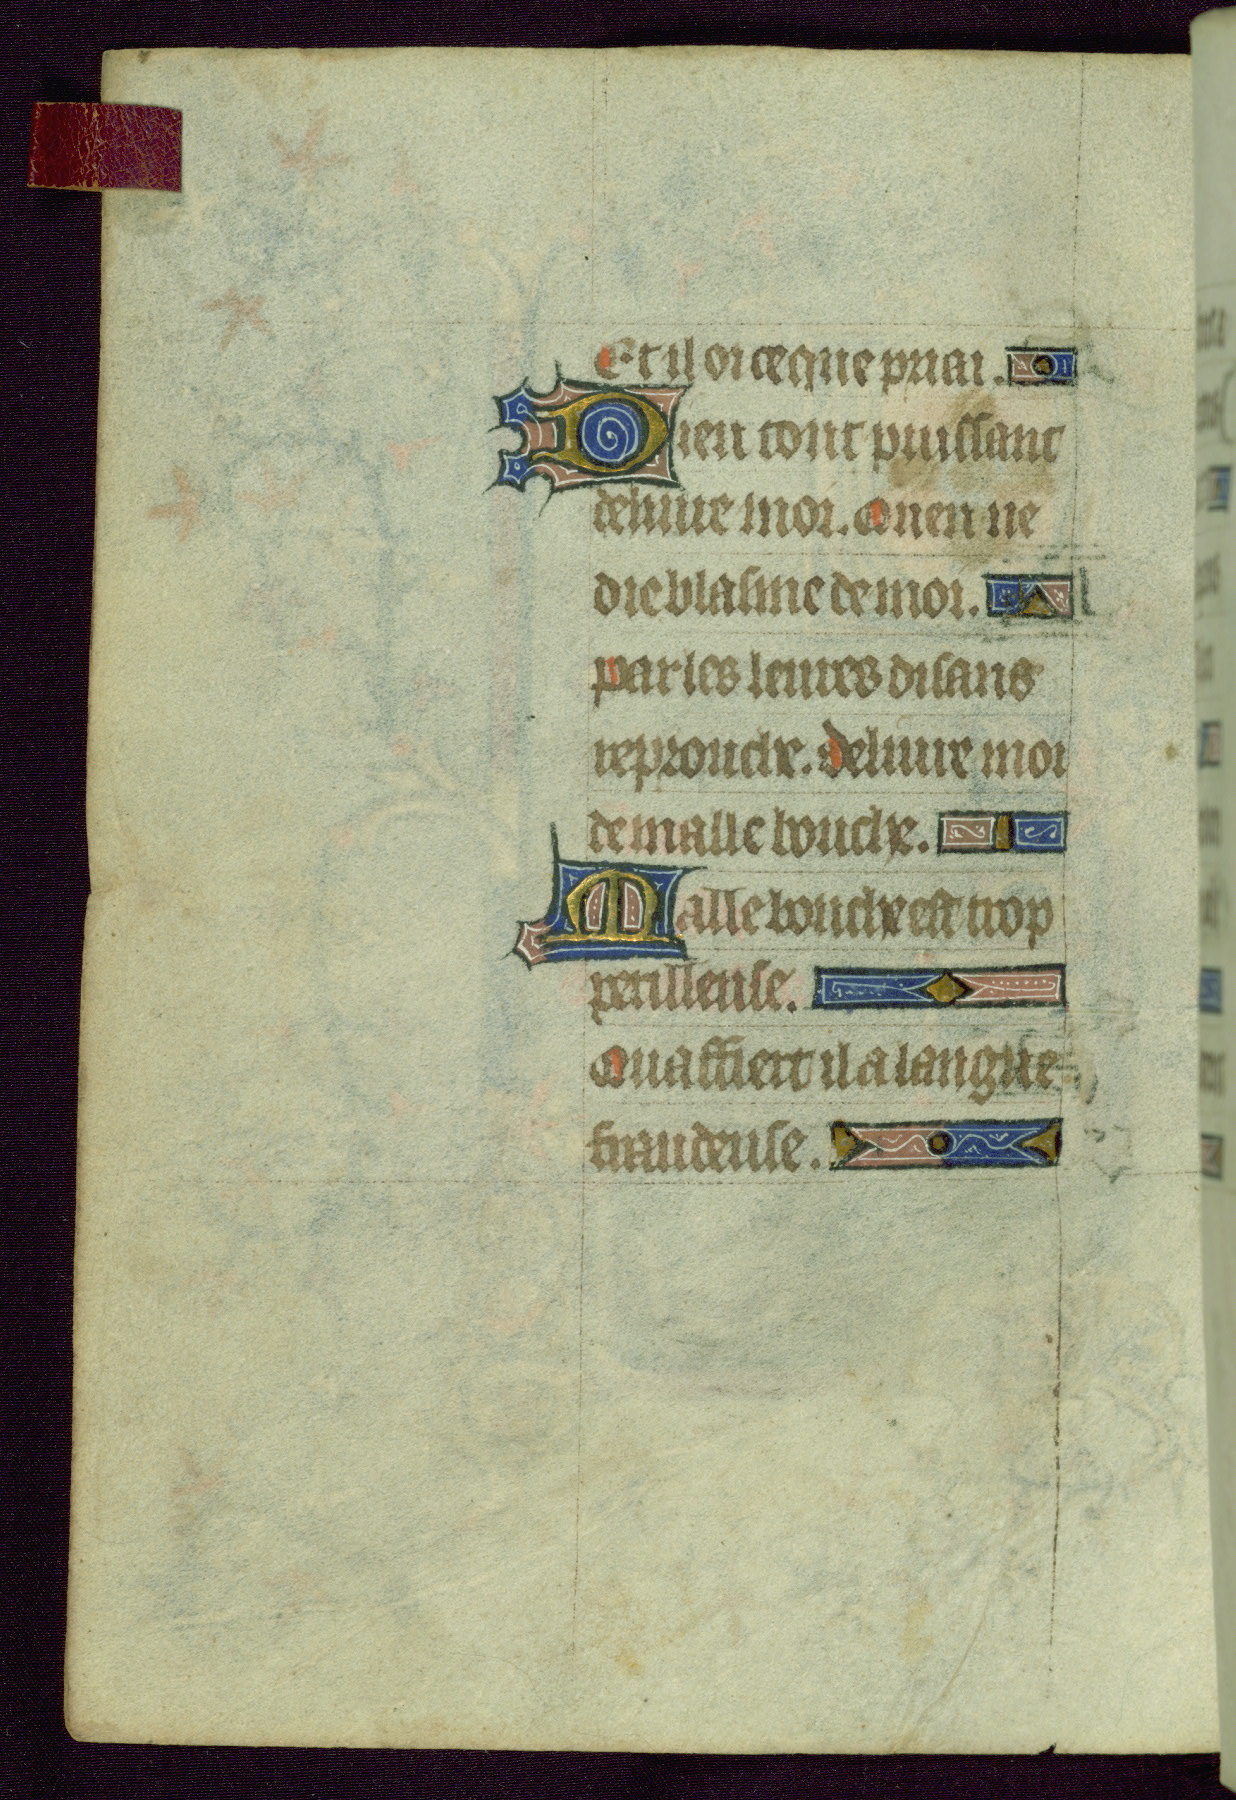 Et il oi ce que priai.
Dieu tout puissant
deliure moi. Quen ne
die blasme de moi.
par les leures disans
reprouche. deliure moi
de malle bouche.
Malle bouche est trop
perilleuse.
Quaffiert il a langue
fraudeuse.